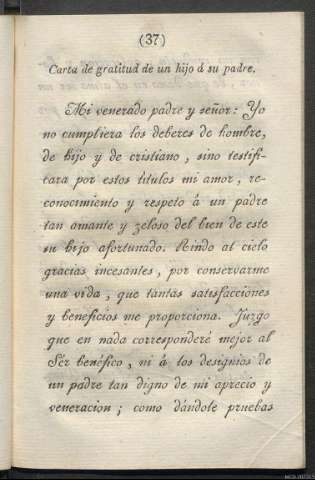 (37)
Carta de gratitud de un hijo á su padre.
Mi venerado padre y señor: Yo
no cumpliera los deberes de hombre,
de hijo y de cristiano, sino testifi-
cara por estos títulos mi amor, re-
conocimiento y respeto á un padre
tan amante y zeloso del bien de este
su hijo afortunado. Rindo al cielo
gracias incesantes, por conservarme
una vida, que tantas satisfacciones
y beneficios me proporciona. Juzgo
que en nada corresponderé mejor al
Sér benéfico, ni á los designios de
un padre tan digno de mi aprecio y
veneracion; como dándole pruebas